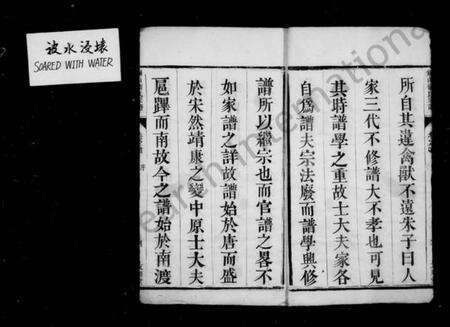 被水浸壞
SOARED WITH WATER
所自其違禽獸不遠朱子曰人
家三代不修譜大不孝也可見
其時譜學之重故士大夫家各
自爲譜夫宗法廢而譜學興修
譜所以繼宗也而官譜之畧不
如家譜之詳故譜始於唐而盛
於宋然靖康之變中原士大夫
扈蹕而南故今之譜始於南渡